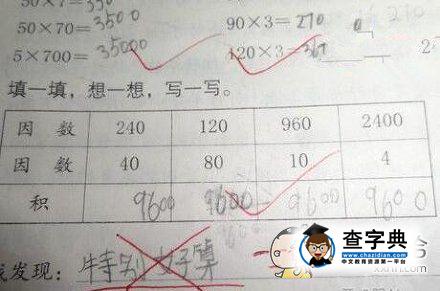 50×7=350
50×70=3500 90×3=270
5×700=35000 120×3=360
填一填,想一想,写一写。
因 数 240 120 960 2400
因 数 40 80 10 4
积 9600 9600 9600 9600
发现:特别好算
查字典
www.chazidian.com